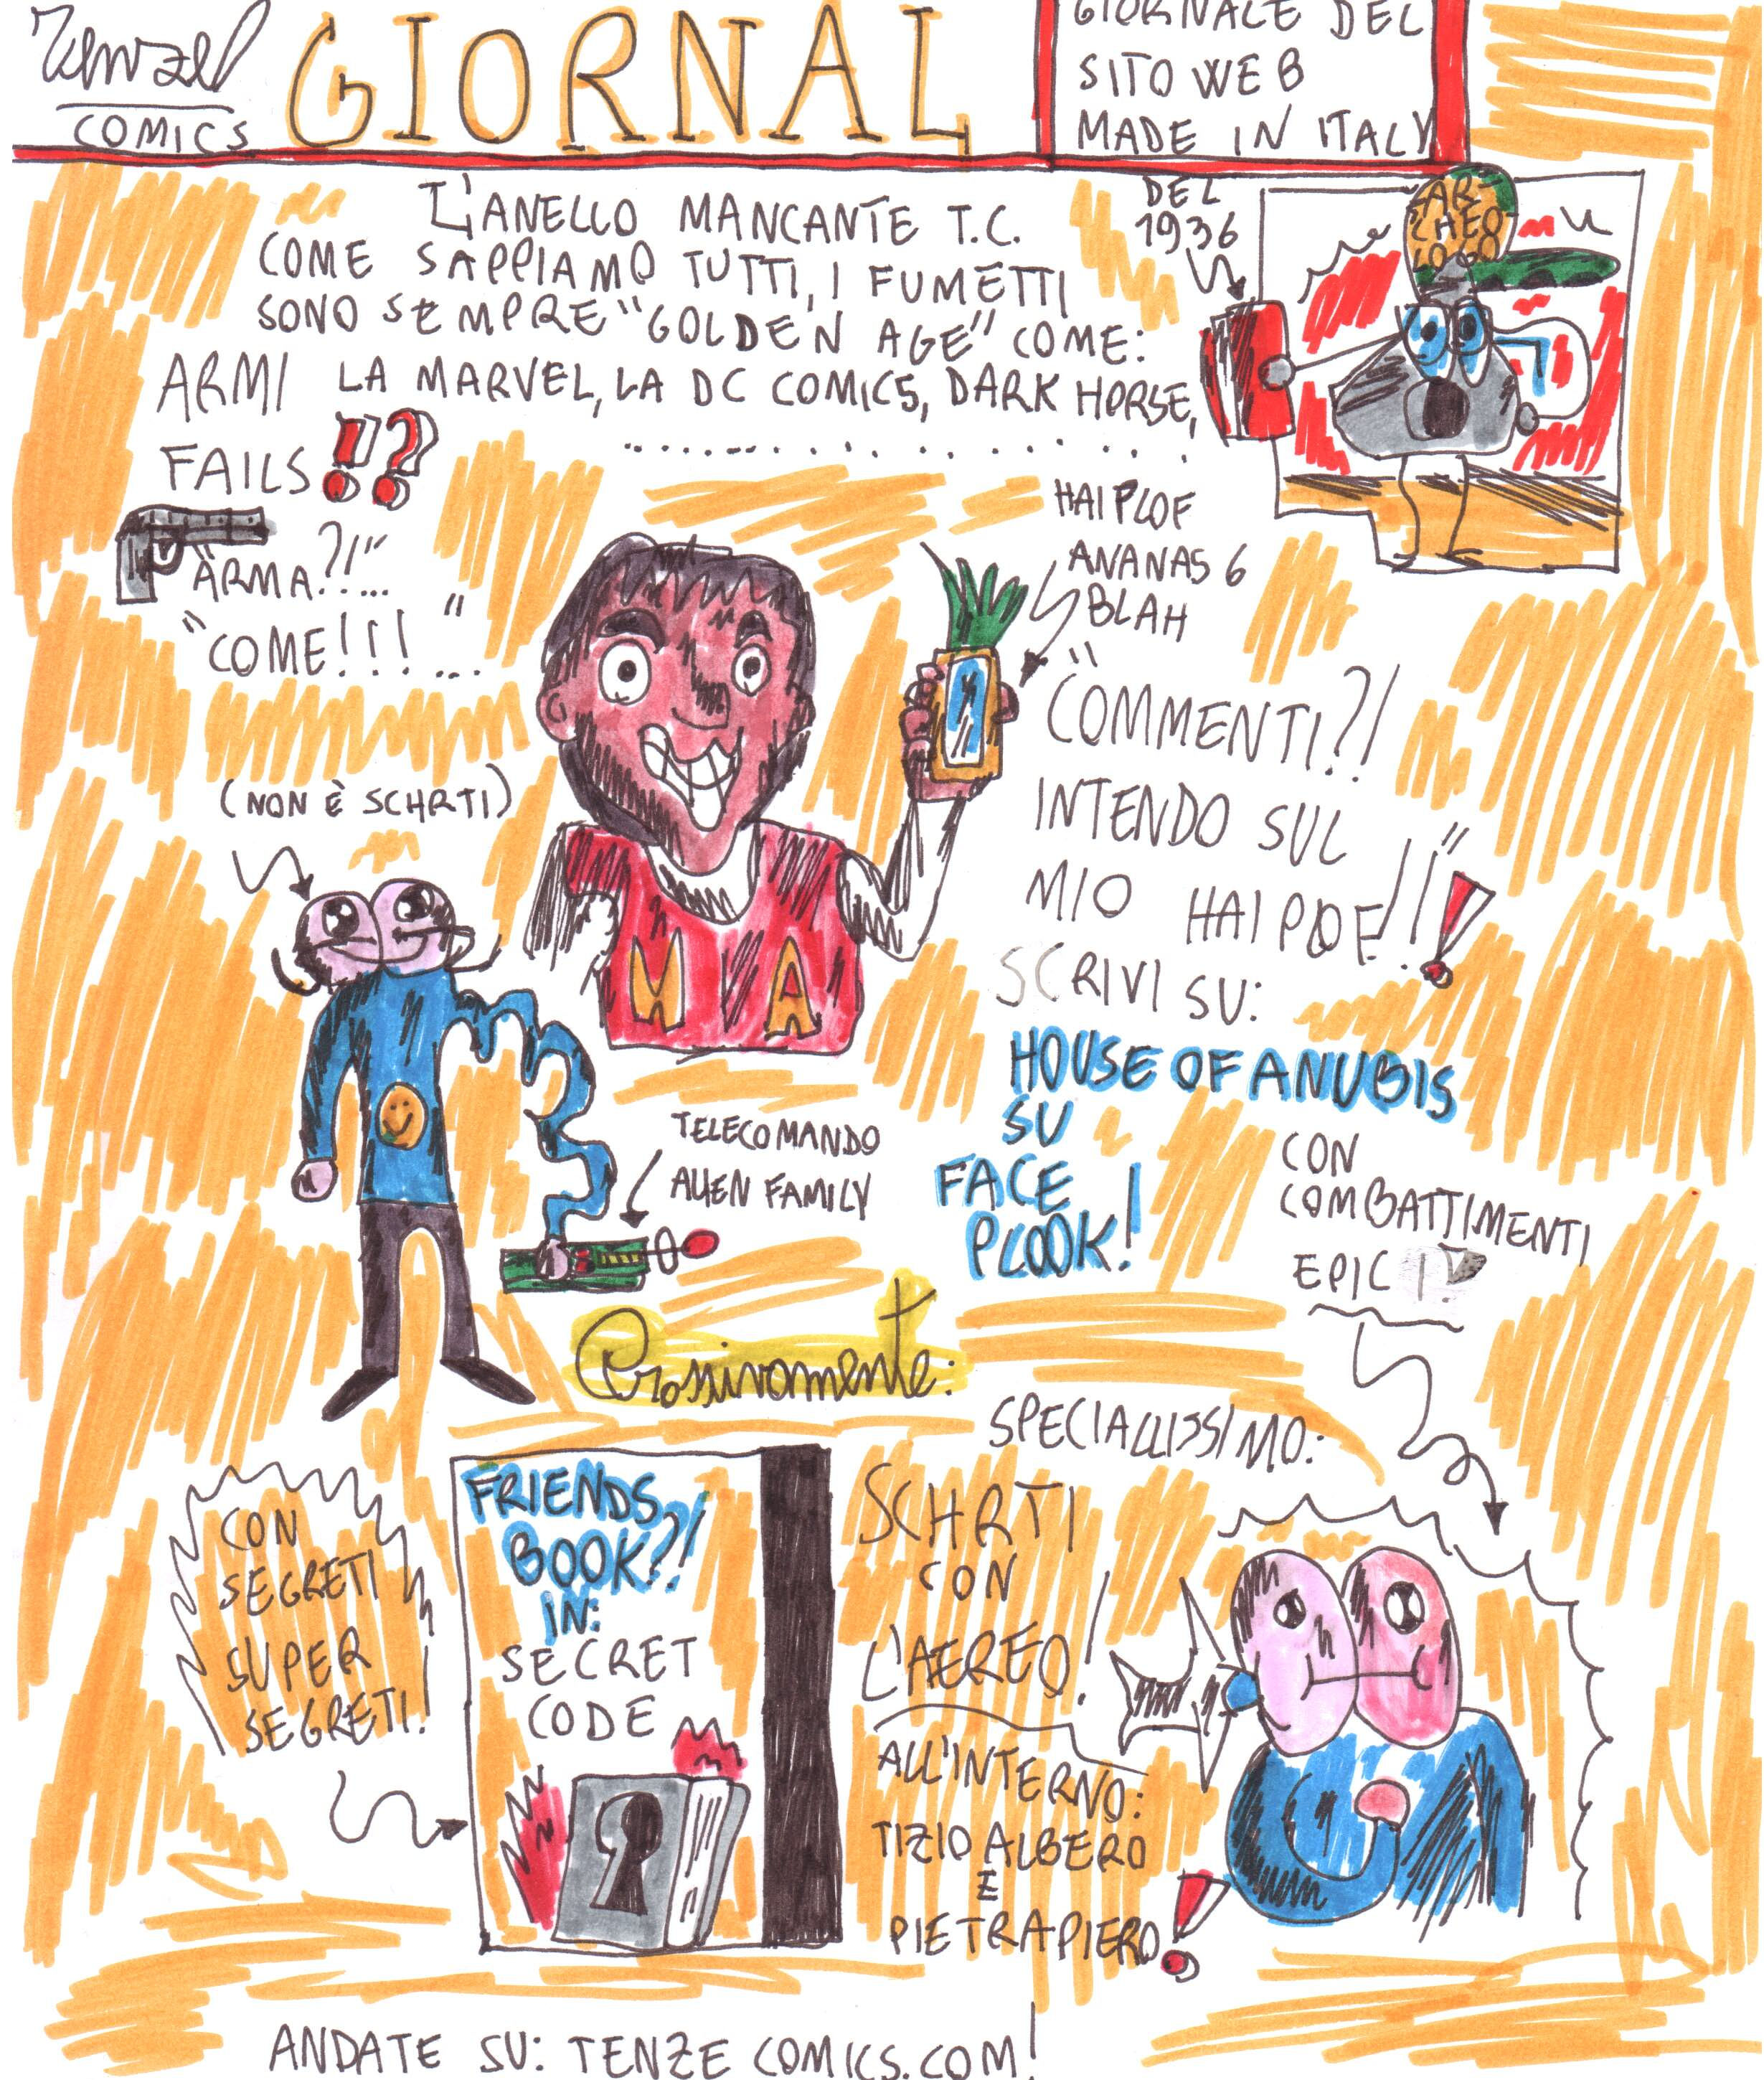 Tenzel
COMICS
GIORNAL
GIORNALE DEL
SITO WEB
MADE IN ITALY
L'ANELLO MANCANTE T.C.
COME SAPPIAMO TUTTI, I FUMETTI
SONO SEMPRE "GOLDEN AGE" COME:
LA MARVEL, LA DC COMICS, DARK HORSE,
..................
DEL
1936
AR
CHEO
LOGO
ARMI
FAILS!?
ARMA?!"...
"COME!!!"...
HAIPLOF
ANANAS 6
BLAH
"COMMENTI?!
INTENDO SUL
MIO HAIPOF!!"!
SCRIVI SU:
HOUSE OF ANUBIS
SU
FACE
PLOOK!
(NON È SCHRTI)
M A
TELECOMANDO
ALIEN FAMILY
CON
COMBATTIMENTI
EPICI!
Prossivamente:
SPECIALLISSIMO:
CON
SEGRETI
SUPER
SEGRETI!
FRIENDS
BOOK?!
IN:
SECRET
CODE
SCHRTI
CON
L'AEREO!
ALL'INTERNO:
TIZIO ALBERO
E
PIETRAPIERO!
ANDATE SU: TENZE COMICS.COM!